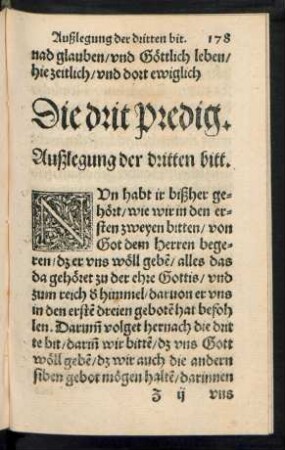 Außlegung der dritten bit. 178
nad glauben/vnd Göttlich leben/
hie zeitlich/vnd dort ewiglich
Die drit Predig.
Außlegung der dritten bitt.
NVn habt ir bißher ge-
hört/wie wir in den er-
sten zweyen bitten/von
Got dem Herren bege-
ren/dz er vns wöll gebẽ/alles das
da gehöret zu der ehre Gottis/vnd
zum reich 8 himmel/daruon er vns
in den erstẽ dreien gebotẽ hat befoh
len. Darum̃ volget hernach die drit
te bit/darin̄ wir bittẽ/dz vns Gott
wöll gebẽ/dz wir auch die andern
siben gebot mögen haltẽ/darinnen
Z ij vns